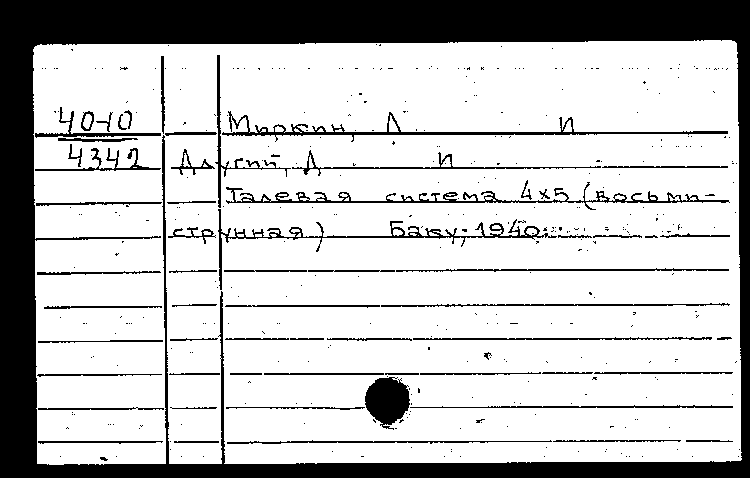 40-10 Миркин, Л И
4342 Длугий, Д И
Талевая система 4x5 (восьми-
струнная) Баку, 1940